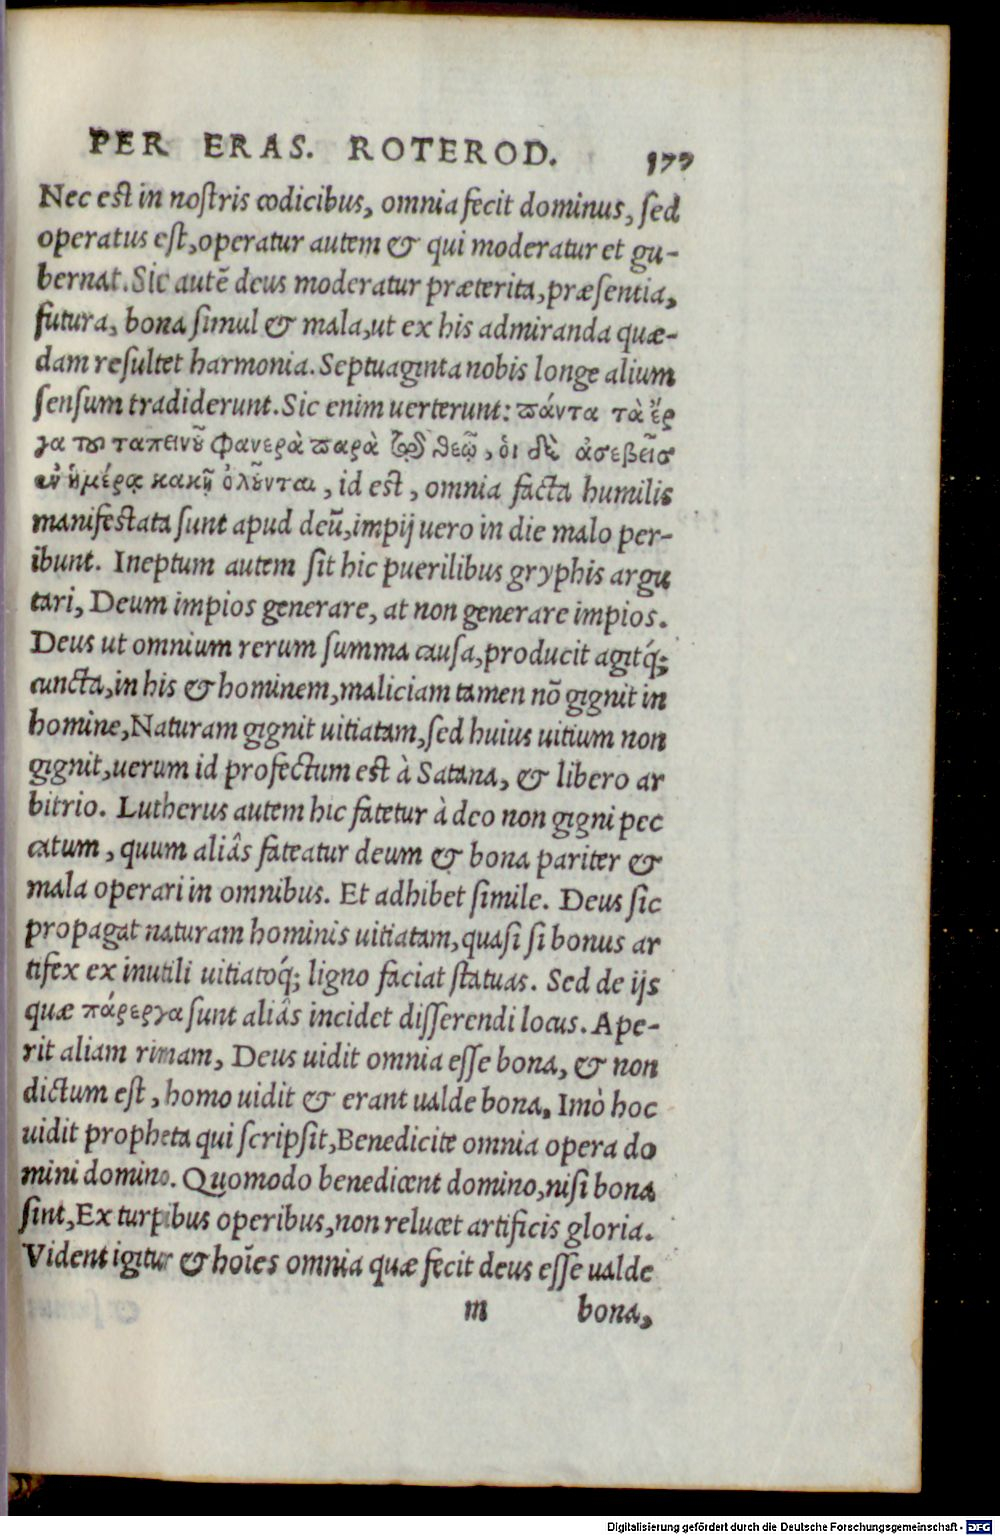 PER ERAS. ROTEROD. 177
Nec est in nostris codicibus, omnia fecit dominus, sed
operatus est, operatur autem & qui moderatur et gu-
bernat. Sic autē deus moderatur præterita, præsentia,
futura, bona simul & mala, ut ex his admiranda quæ-
dam resultet harmonia. Septuaginta nobis longe alium
sensum tradiderunt. Sic enim uerterunt: πάντα τὰ ἔρ
γα τοῦ ταπεινοῦ φανερὰ παρὰ τῷ θεῷ, ὁι δὲ ἀσεβεῖς
ἐν ἡμέρᾳ κακῇ ὀλοῦνται, id est, omnia facta humilis
manifestata sunt apud deū, impij uero in die malo per-
ibunt. Ineptum autem sit hic puerilibus gryphis argu
tari, Deum impios generare, at non generare impios.
Deus ut omnium rerum summa causa, producit agitq́;
cuncta, in his & hominem, maliciam tamen nō gignit in
homine, Naturam gignit uitiatam, sed huius uitium non
gignit, uerum id profectum est à Satana, & libero ar
bitrio. Lutherus autem hic fatetur à deo non gigni pec
catum, quum aliâs fateatur deum & bona pariter &
mala operari in omnibus. Et adhibet simile. Deus sic
propagat naturam hominis uitiatam, quasi si bonus ar
tifex ex inutili uitiatoq́; ligno faciat statuas. Sed de ijs
quæ πάρεργα sunt aliâs incidet disserendi locus. Ape-
rit aliam rimam, Deus uidit omnia esse bona, & non
dictum est, homo uidit & erant ualde bona. Imò hoc
uidit propheta qui scripsit, Benedicite omnia opera do
mini domino. Quomodo benedicent domino, nisi bona
sint, Ex turpibus operibus, non relucet artificis gloria.
Vident igitur & hoīes omnia quæ fecit deus esse ualde
m bona,
Digitalisierung gefördert durch die Deutsche Forschungsgemeinschaft - DFG